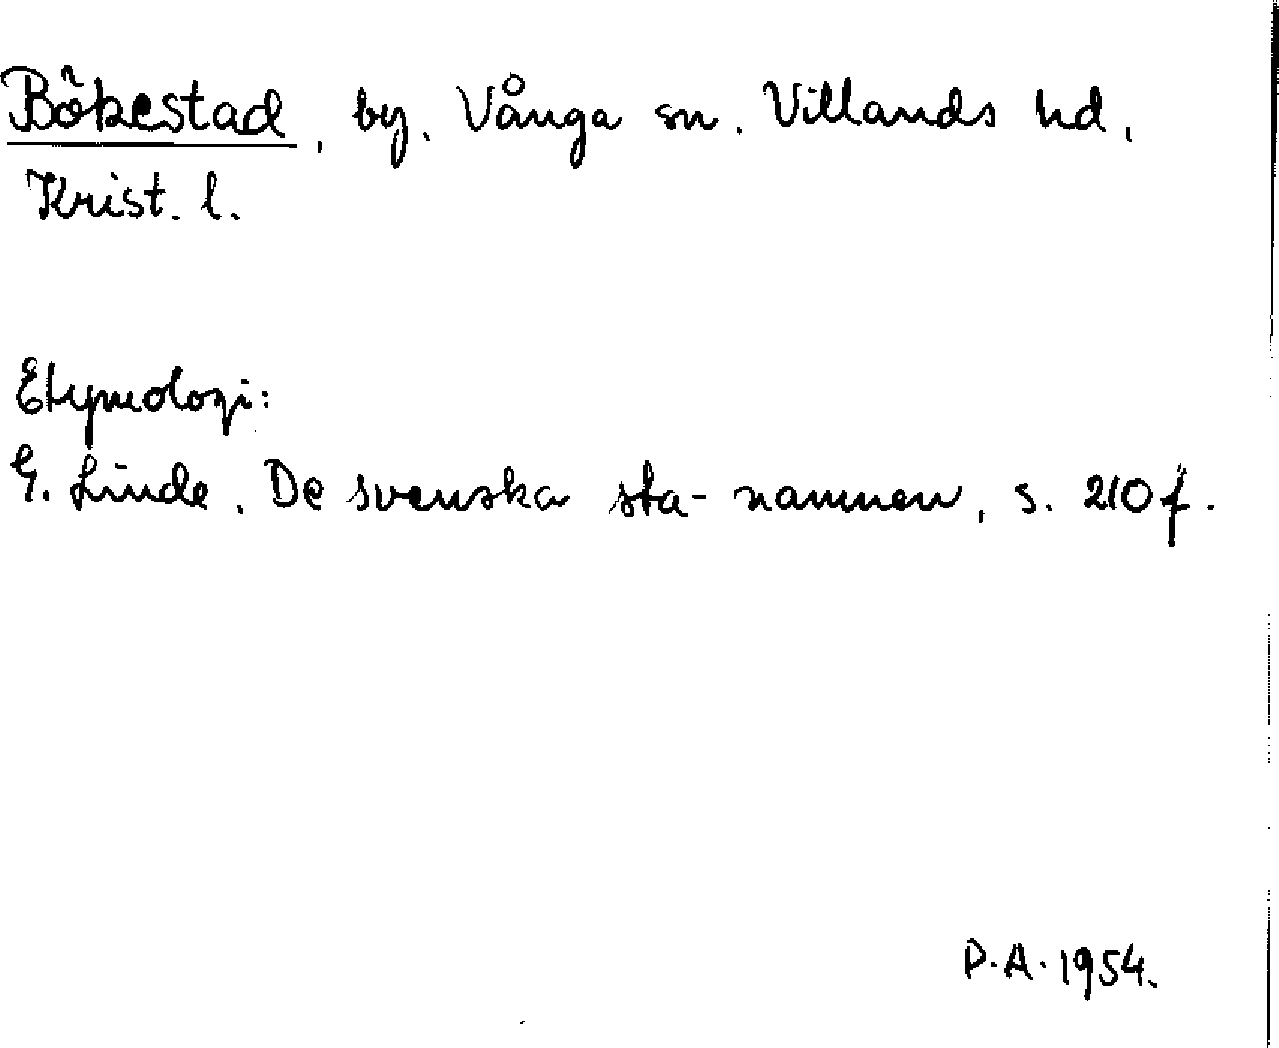 Bökestad, by, Vånga sn. Villands hd,
Krist. l.
Etymologi:
G. Linde, De svenska sta-namnen, s. 210 f.
P.A. 1954.